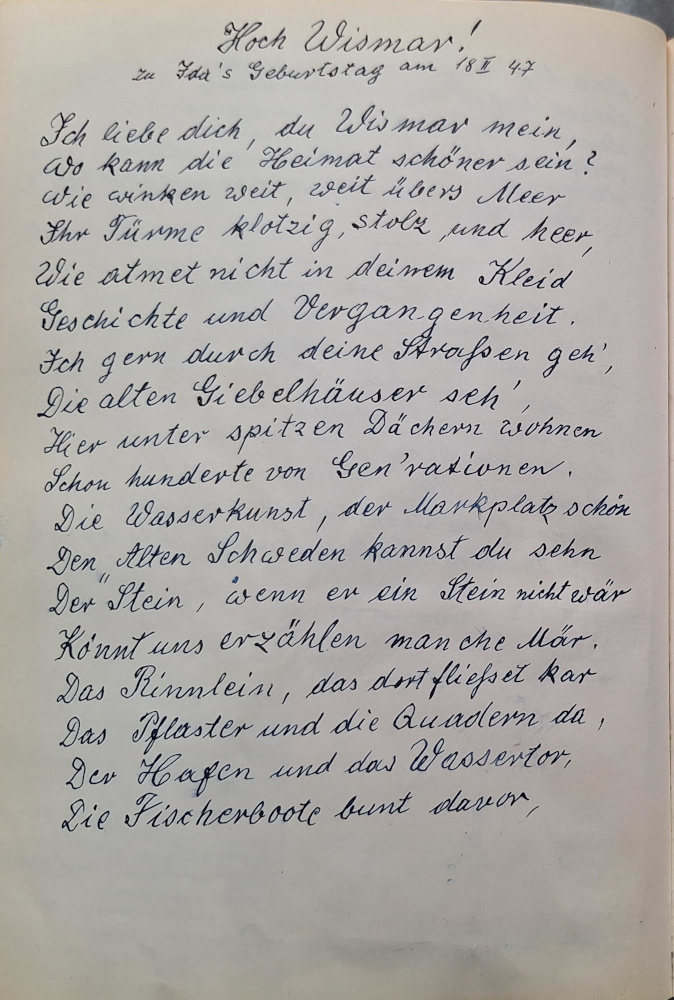 Hoch Wismar!
zu Ida's Geburtstag am 18 II 47
Ich liebe dich, du Wismar mein,
Wo kann die Heimat schöner sein?
Wie winken weit, weit übers Meer
Ihr Türme klotzig, stolz und heer,
Wie atmet nicht in deinem Kleid
Geschichte und Vergangenheit.
Ich gern durch deine Straßen geh',
Die alten Giebelhäuser seh',
Hier unter spitzen Dächern wohnen
Schon hunderte von Gen'rationen.
Die Wasserkunst, der Markplatz schön
Den „Alten Schweden kannst du sehn
Der Stein, wenn er ein Stein nicht wär
Könnt uns erzählen manche Mär.
Das Rinnlein, das dort fließet kar
Das Pflaster und die Quadern da,
Der Hafen und das Wassertor,
Die Fischerboote bunt davor,